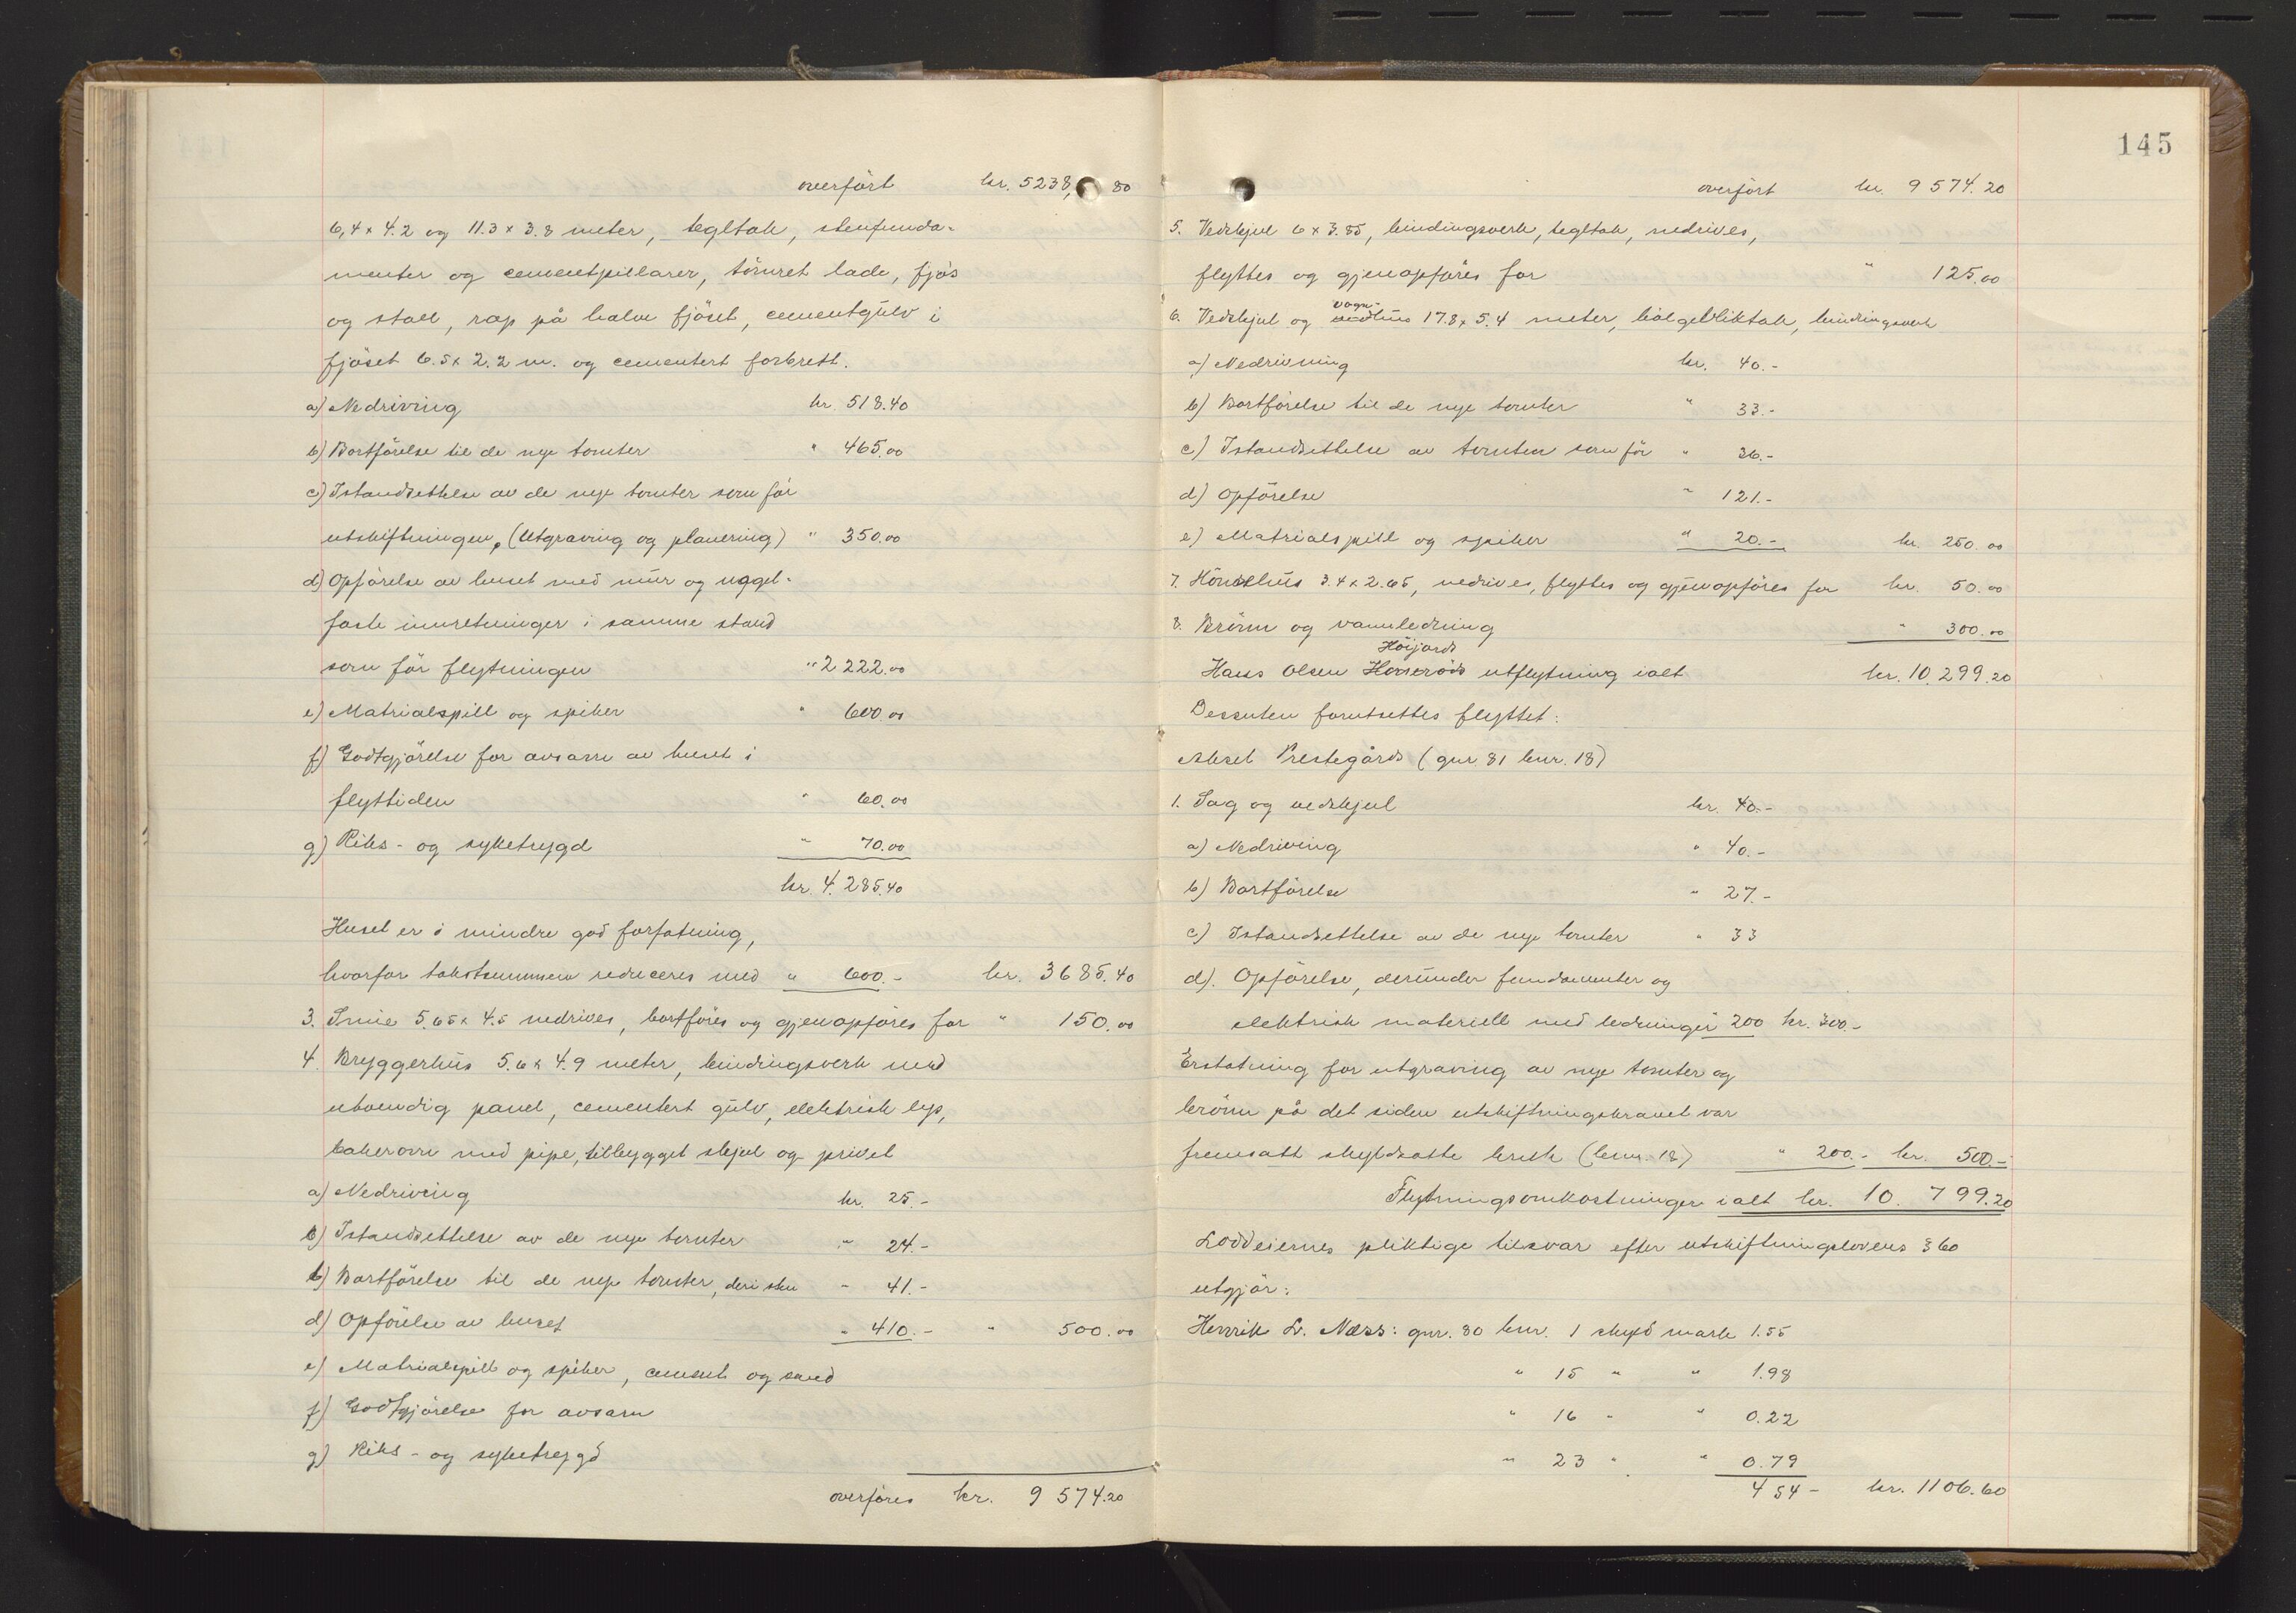 overfört kr. 5238,80
6,4 x 4.2 og 11.3 x 3.8 meter, tegltak, stenfunda-
menter og cementpillarer, tömret lade, fjös
og stall, rap på halve fjöset, cementgulv i
fjöset 6.5 x 2.2 m. og cementert forbrett.
a) Nedriving kr 518.40
b) Bortförelse til de nye tomter " 465.00
c) Istandsettelse av de nye tomter som för
utskiftningen, (Utgraving og planering) " 350.00
d) Opförelse av huset med mur og
faste innretninger i samme stand
som för flytningen " 2 222.00
e) Matrialspill og spiker " 600.00
f) Godtgjörelse for avsavn av huset i
flyttiden " 60.00
g) Riks- og syketrygd " 70.00
kr. 4.285.40
Huset er i mindre god forfatning,
hvorfor takstsummen reduceres med " 600.- kr. 3685.40
3. Smie 5.65 x 4.5 nedrives, bortföres og gjenopföres for " 150.00
4. Bryggerhus 5.6 x 4.9 meter, bindingsverk med
utvendig panel, cementert gulv, elektrisk lys,
bakerovn med pipe, tilbygget skjul og privet
a) Nedriving kr. 25.-
b) Istandsettelse av de nye tomter " 24.-
b) Bortförelse til de nye tomter, deri sten " 41.-
d) Opförelse av huset " 410.- " 500.00
e) Matrialspill og spiker, cement og sand
f) Godtgjörelse for avsavn
g) Riks- og syketrygd
overföres kr. 9 574.20
145
overfört kr. 9 574.20
5. Vedskjul 6 x 3.85, bindingsverk, tegltak, nedrives,
flyttes og gjenopföres for " 125.00
vogn-
6. Vedskjul og vedhus 17.8 x 5.4 meter, bölgebliktak, bindingsverk
a) Nedrivning kr. 40.-
b) Bortförelse til de nye tomter " 33.-
c) Istandsettelse av tomten som för " 36.-
d) Opförelse " 121.-
e) Matrialspill og spiker " 20.- kr. 250.00
7. Hönsehus 3.4 x 2.65, nedrives, flyttes og gjenopföres for kr. 50.00
8. Brönn og vannledning " 300.00
Höijord
Hans Olsen Horseröds utflytning ialt kr. 10.299.20
Dessuten forutsettes flyttet:
Aksel Prestegård (gnr. 81 bnr. 18)
1. Sag og vedskjul kr. 40.-
a) Nedriving " 40.-
b) Bortförelse " 27.-
c) Istandsettelse av de nye tomter " 33
d). Opförelse, derunder fundamenter og
elektrisk materiell med ledninger 200 kr. 300.-
Erstatning for utgraving av nye tomter og
brönn på det siden utskiftningskravet var
fremsatt skyldsatte bruk (bnr. 18) " 200.- kr. 500.-
Flytningsomkostninger ialt kr. 10.799.20
Loddeiernes pliktige tilsvar efter utskiftningslovens § 60
utgjör:
Henrik L. Næss: gnr. 80 bnr. 1 skyld mark 1.55
" 15 " " 1.98
" 16 " " 0.22
" 23 " " 0.79
4 54 - kr. 1106.60